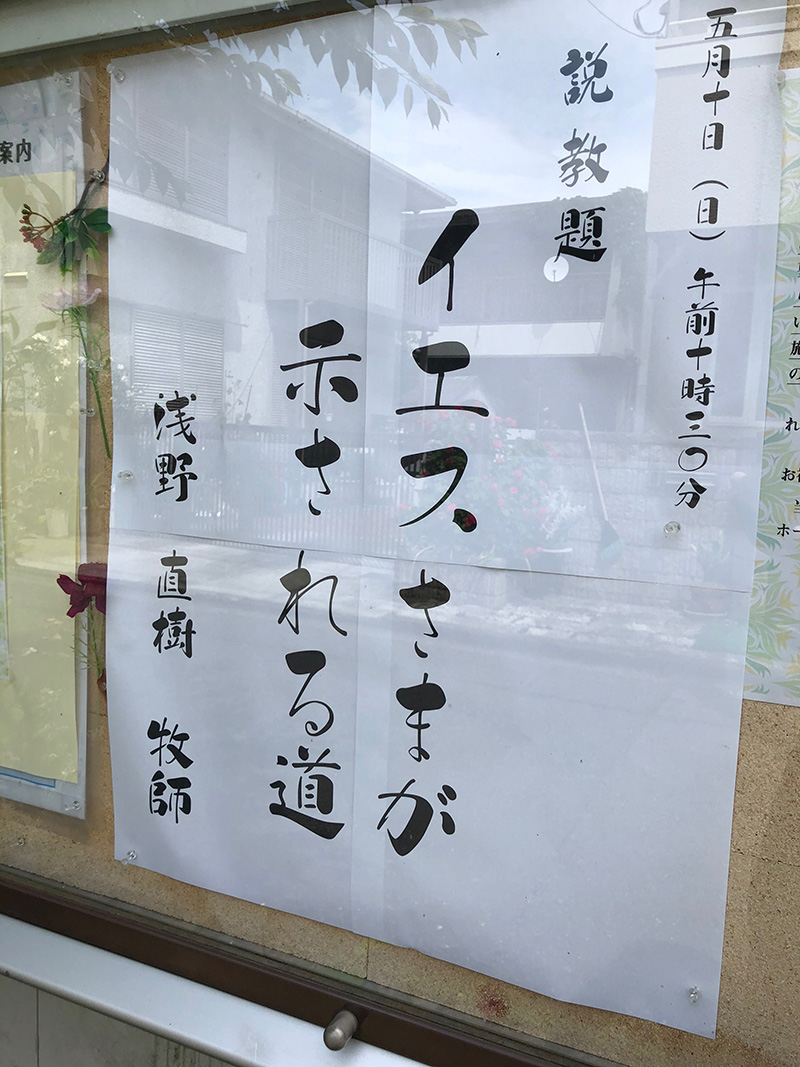 五月十日(日)午前十時三〇分
説教題
イエスさまが
示される道
浅野 直樹 牧師
案内
い
施
の
れ
ホー